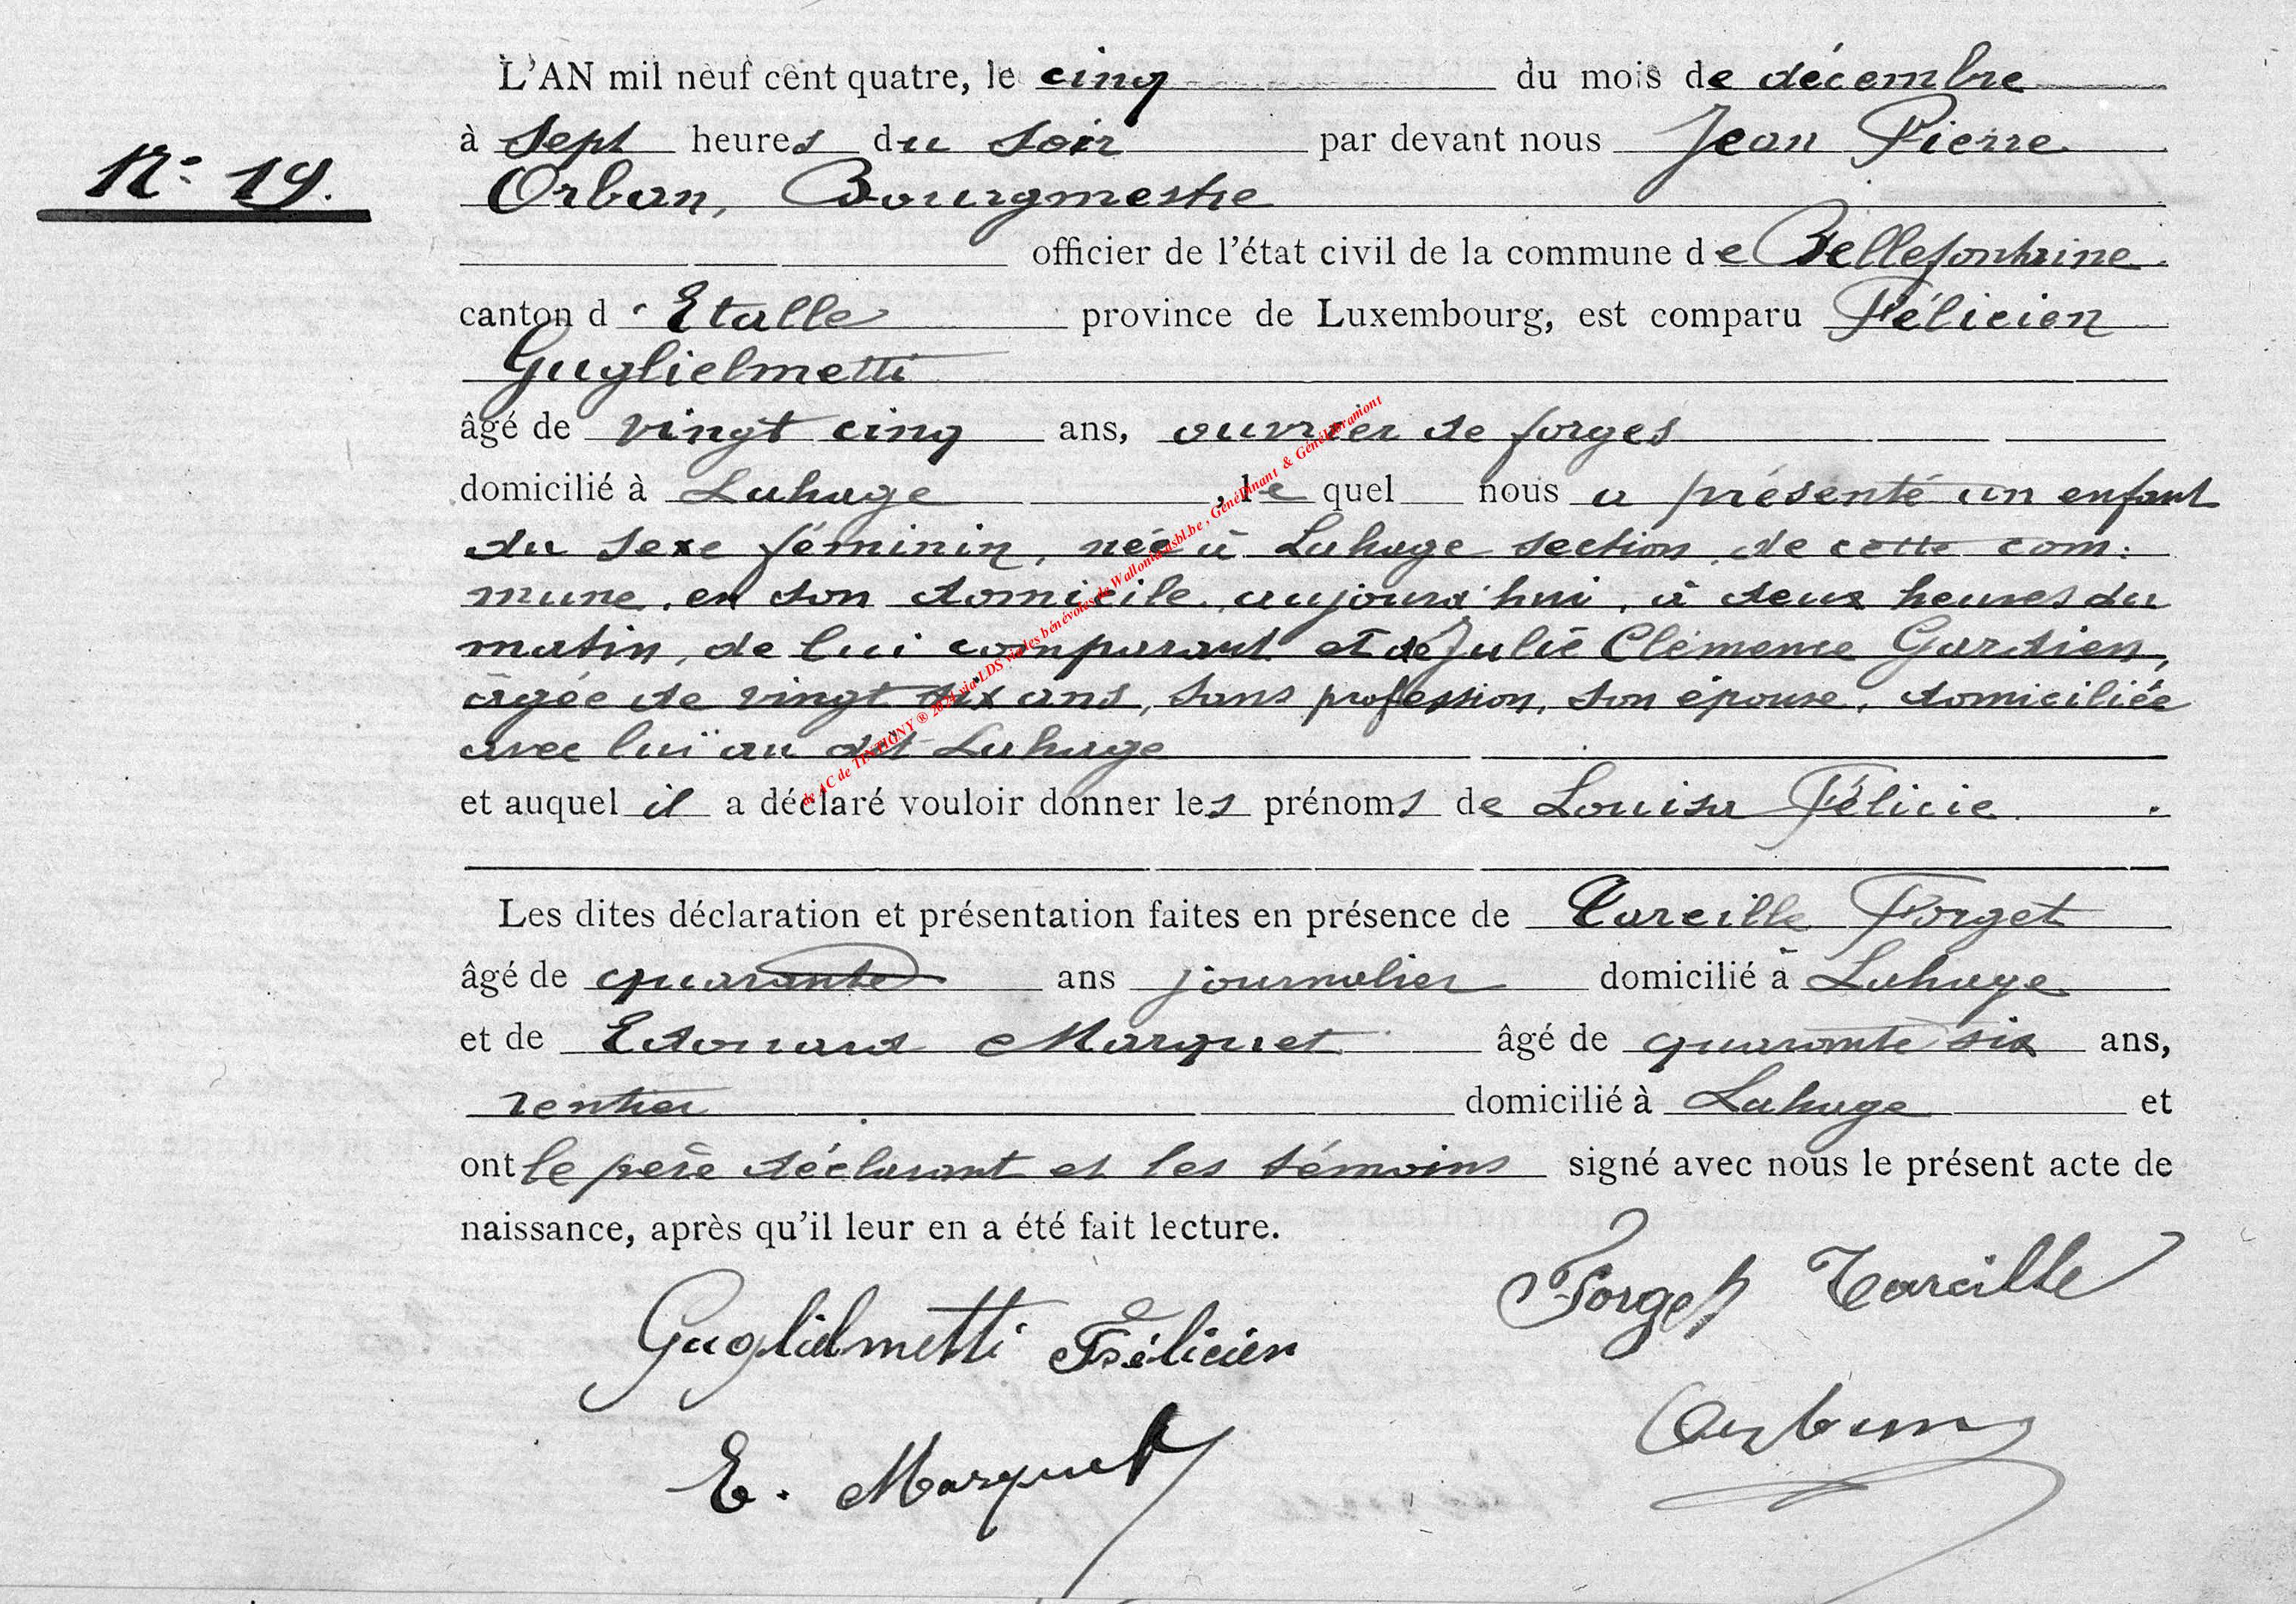 L'AN mil neuf cent quatre, le cinq du mois de décembre
à Sept heures du soir par devant nous Jean Pierre
N° 19.
Orban, Bourgmestre
officier de l'état civil de la commune de Bellefontaine
canton d'Etalle province de Luxembourg, est comparu Félicien
Guglielmetti
âgé de vingt cinq ans, ouvrier de forges
domicilié à Lahage, lequel nous a présenté un enfant
du sexe féminin, née à Lahage section de cette com:
mune, en son domicile, aujourd'hui, à deux heures du
matin, de lui comparant et de Julie Clémence Gardien,
âgée de vingt six ans, sans profession, son épouse, domiciliée
avec lui au dit Lahage
et auquel il a déclaré vouloir donner les prénoms de Louisa Félicie.
Les dites déclaration et présentation faites en présence de Tareille Forget
âgé de quarante ans journalier domicilié à Lahage
et de Edouard Marquet âgé de quarante six ans,
rentier domicilié à Lahage et
ont le père déclarant et les témoins signé avec nous le présent acte de
naissance, après qu'il leur en a été fait lecture.
Forget Tareille
Guglielmetti Félicien
Orban
E. Marquet
de AC de TINTIGNY ® 2024 via LDS via les bénévoles de Wallonia asbl.be , GénéDinant & GénéLibramont